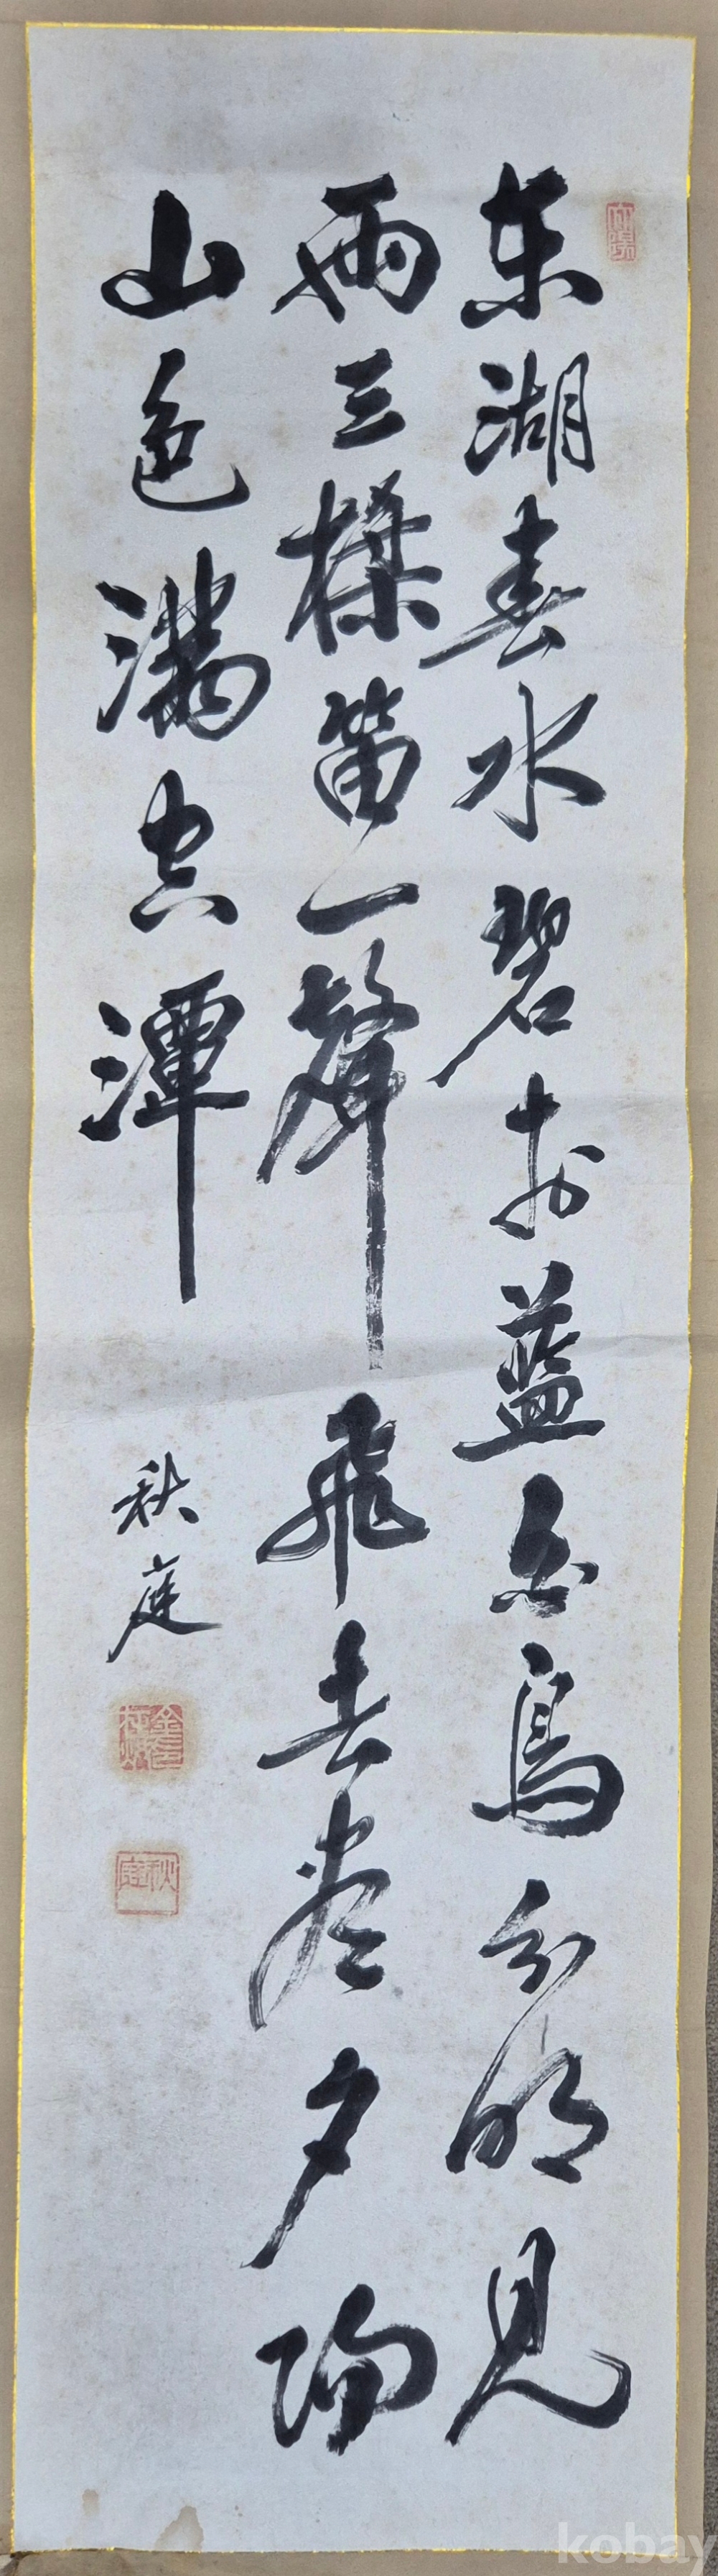 東湖春水碧於藍白鳥分明見
兩三棹笛一聲飛去盡夕陽
山色滿空潭
秋庭
秋庭
kobay